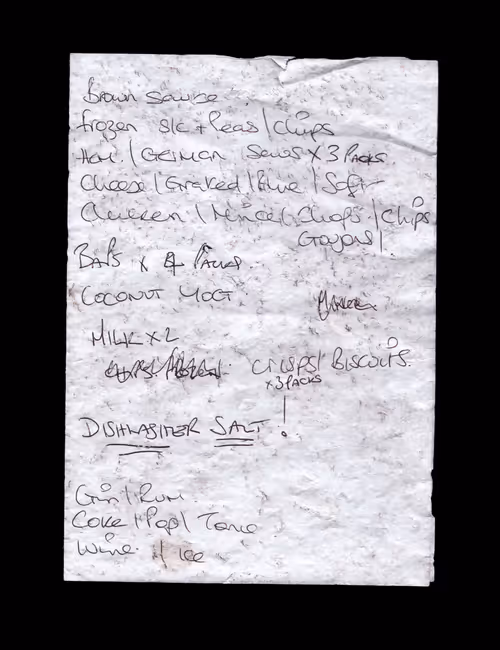 Brown Sauce
Frozen S/C + Peas / Chips
Ham / German Saus X 3 Packs
Cheese / Grated / Blue / Soft
Chicken / Mince / Chops / Chips
Goujons /
Baps x 4 Packs.
Coconut Yogt.
Milk x 2
Crisps / Biscuits.
x 3 Packs
Dishwasher Salt !
Gin / Rum.
Coke / Pop / Tonic
Wine / Ice